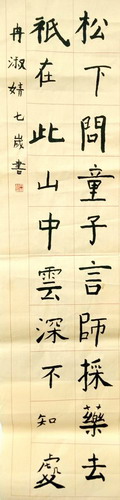 松下問童子言師採藥去
祇在此山中雲深不知處
冉淑婧七歲書